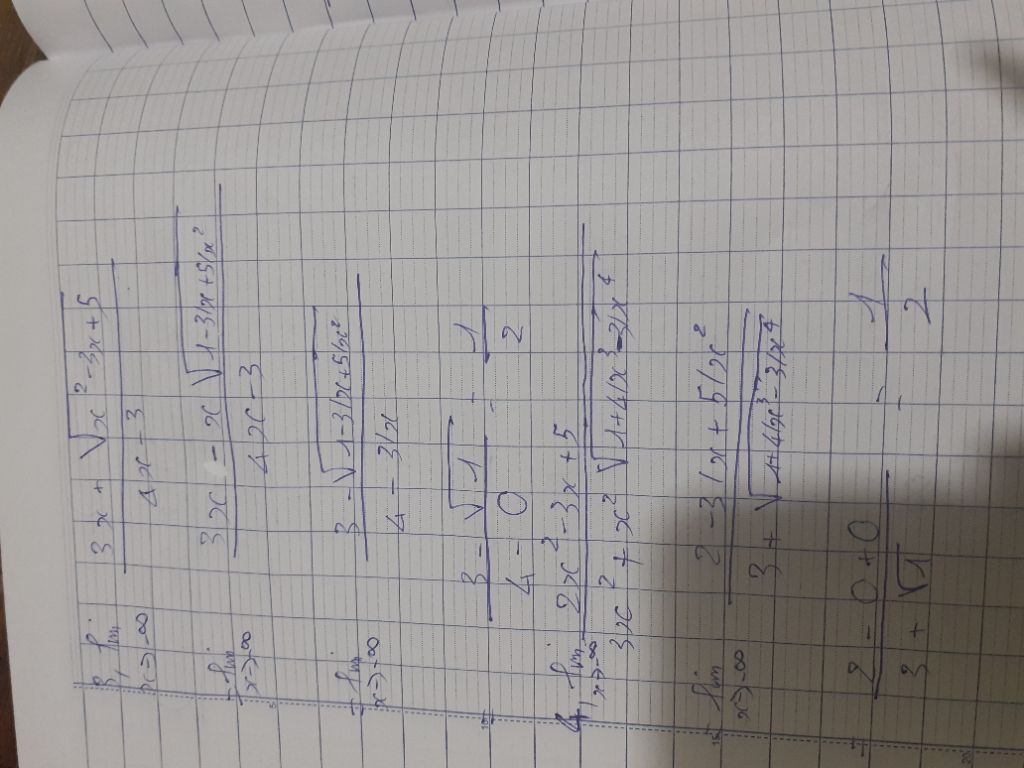 3, lim x→-∞ (3x + √(x² - 3x + 5)) / (4x - 3)
= lim x→-∞ (3x - x √(1 - 3/x + 5/x²)) / (4x - 3)
= lim x→-∞ (3 - √(1 - 3/x + 5/x²)) / (4 - 3/x)
(3 - √1) / (4 - 0) = 1/2
4, lim x→-∞ (2x² - 3x + 5) / (3x² + x² √(1 + 4/x³ - 3/x⁴))
= lim x→-∞ (2 - 3/x + 5/x²) / (3 + √(1 + 4/x³ - 3/x⁴))
= (2 - 0 + 0) / (3 + √1) = 1/2